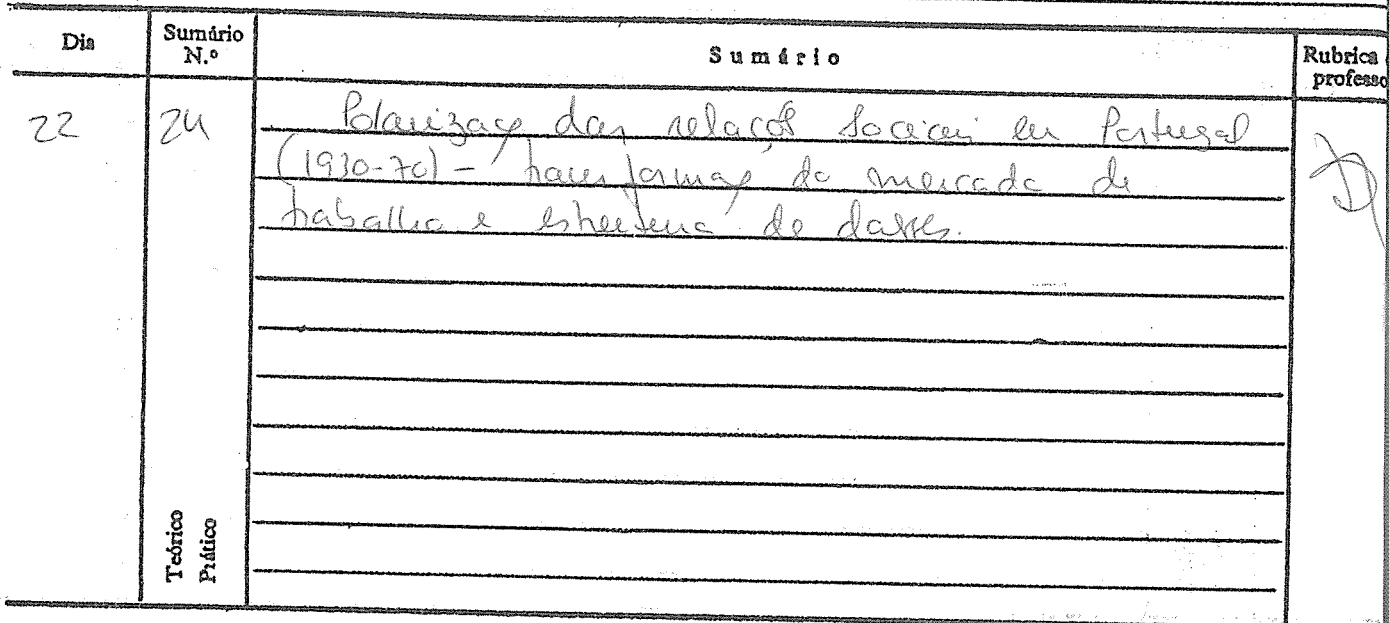 Dia
Sumário N.º
Sumário
Rubrica
professo
22
24
Polarizaçã das relações sociais em Portugal
(1930-70) - transformaçã do mercado de
trabalho e estrutura de classes.
Teórico
Prático